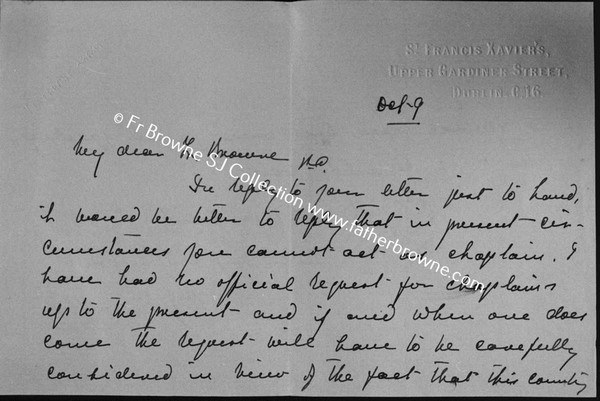 St FRANCIS XAVIER'S,
UPPER GARDINER STREET,
DUBLIN. C.16.
Oct-9
My dear Fr. Browne P.C.
© Fr Browne SJ Collection www.fatherbrowne.com
In reply to your letter just to hand,
it would be better to reply that in present cir-
cumstances you cannot act as chaplain. I
have had no official request for chaplains
up to the present and if and when one does
come the request will have to be carefully
considered in view of the fact that this country